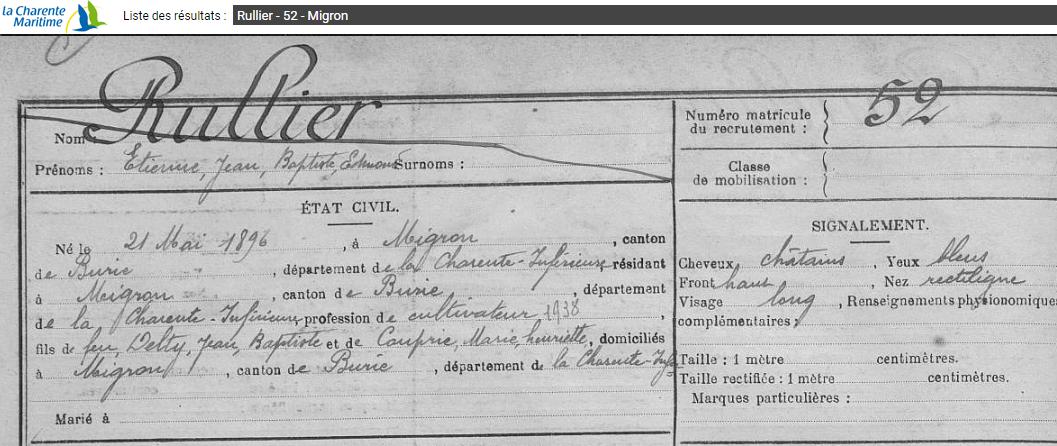 la Charente Maritime
Liste des résultats : Rullier - 52 - Migron
Nom : Rullier
Prénoms : Etienne, Jean, Baptiste, Edmond Surnoms :
Numéro matricule
du recrutement : 52
Classe
de mobilisation :
ÉTAT CIVIL.
Né le 21 Mai 1896, à Migron, canton
de Burie, département de la Charente-Inférieure, résidant
à Meigron, canton de Burie, département
de la Charente-Inférieure, profession de cultivateur 1938,
fils de feu, Delty, Jean, Baptiste et de Couprie, Marie, henriette, domiciliés
à Migron, canton de Burie, département de la Charente-Infre
Marié à
SIGNALEMENT.
Cheveux châtains, Yeux bleus
Front haut, Nez rectiligne
Visage long, Renseignements physionomique
complémentaires :
Taille : 1 mètre centimètres.
Taille rectifiée : 1 mètre centimètres.
Marques particulières :